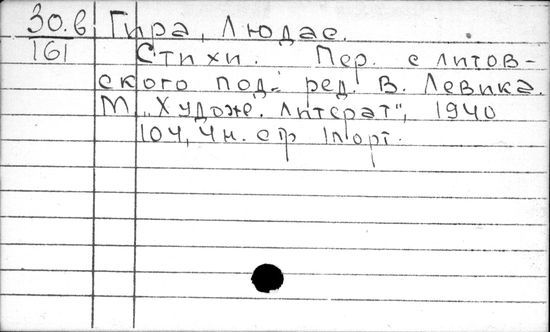 30.в Гира, Людас.
161 Стихи. Пер. с литов-
ского под ред. В. Левика.
М „Художе. Литерат", 1940
104, 4н. стр 1порт.